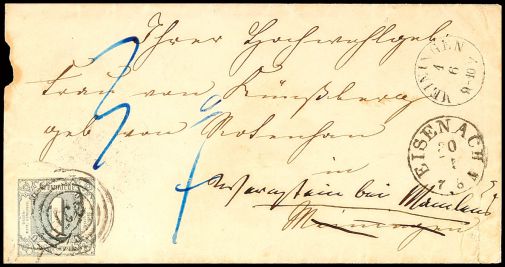 Ihrer Hochwohlgeb.
Frau von Künßberg
geb. von Rotenhan
in
Wernstein bei Mainleus
Meiningen
MEININGEN
4
6
EISENACH
20